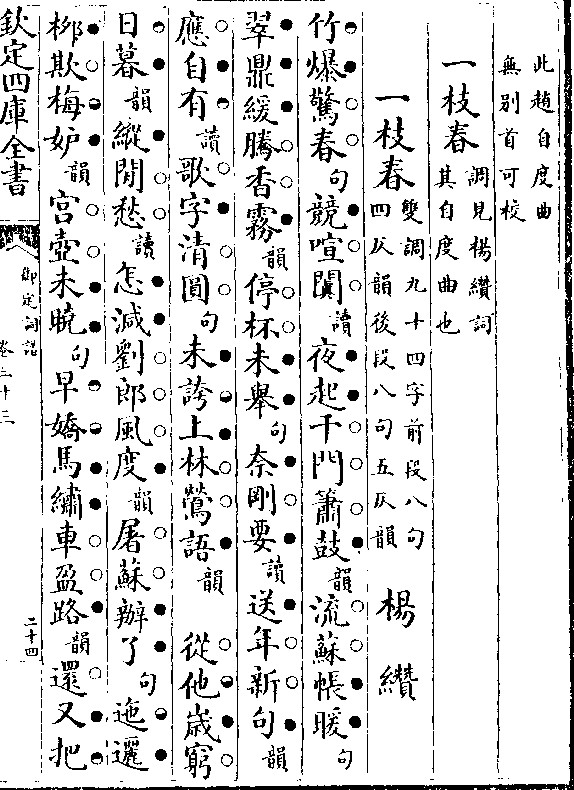 此趙自度曲
無别首可校
一枝春 調見楊纘詞
其自度曲也
一枝春 雙調九十四字前段八句
四仄韻後段八句五仄韻 楊 纘
竹爆驚春句競喧闐讀夜起千門簫鼓韻流蘇帳暖句
翠鼎緩騰香霧韻停杯未舉句奈剛要讀送年新句韻
應自有讀歌字清圓句未誇上林鶯語韻 從他歲窮
日暮韻縱閒愁讀怎減劉郎風度韻屠蘇辦了句迤邐
柳欺梅妒韻宮壺未曉句早嬌馬繡車盈路韻還又把
欽定四庫全書
御定詞譜
卷二十三
二十四